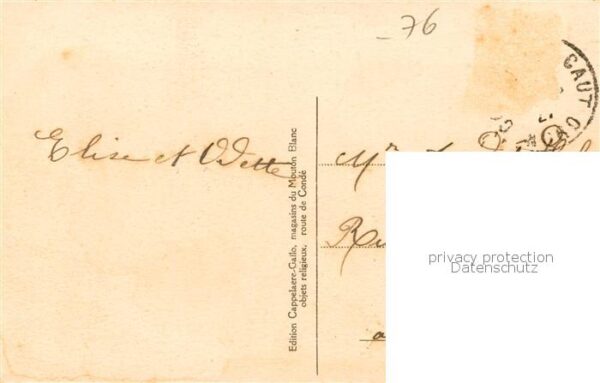 -76
GAUT
Elise et Odette
Edition Cappelaere-Gailo, magasins du Mouton Blanc
objets religieux, route de Condé
Mr
privacy protection
Datenschutz